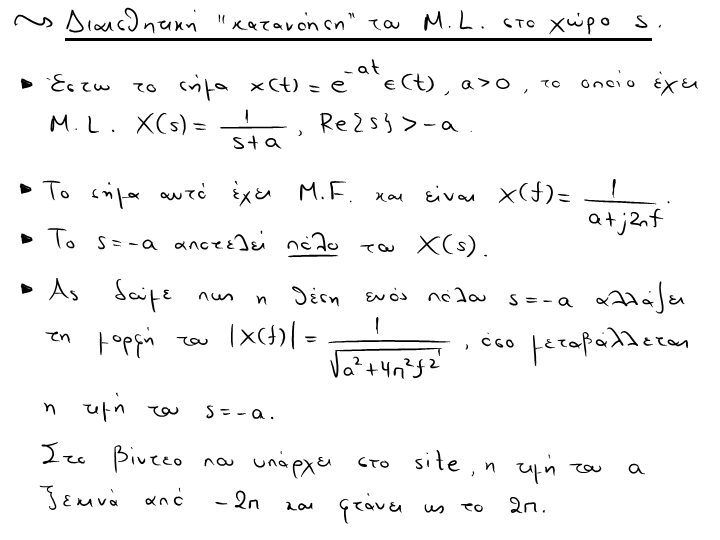 ~> Διαισθητική "κατανόηση" του Μ.L. στο χώρο s.
▸ Έστω το σήμα x(t) = e^{-at} ε(t), a>0, το οποίο έχει
M.L. X(s) = 1/(s+a), Re{s} > -a.
▸ Το σήμα αυτό έχει M.F. και είναι X(f) = 1/(a+j2πf).
▸ Το s=-a αποτελεί πόλο του X(s).
▸ Ας δούμε πως η θέση ενός πόλου s=-a αλλάζει
τη μορφή του |X(f)| = 1/√(a²+4π²f²), όσο μεταβάλλεται
η τιμή του s=-a.
Στο βίντεο που υπάρχει στο site, η τιμή του a
ξεκινά από -2π και φτάνει ως το 2π.